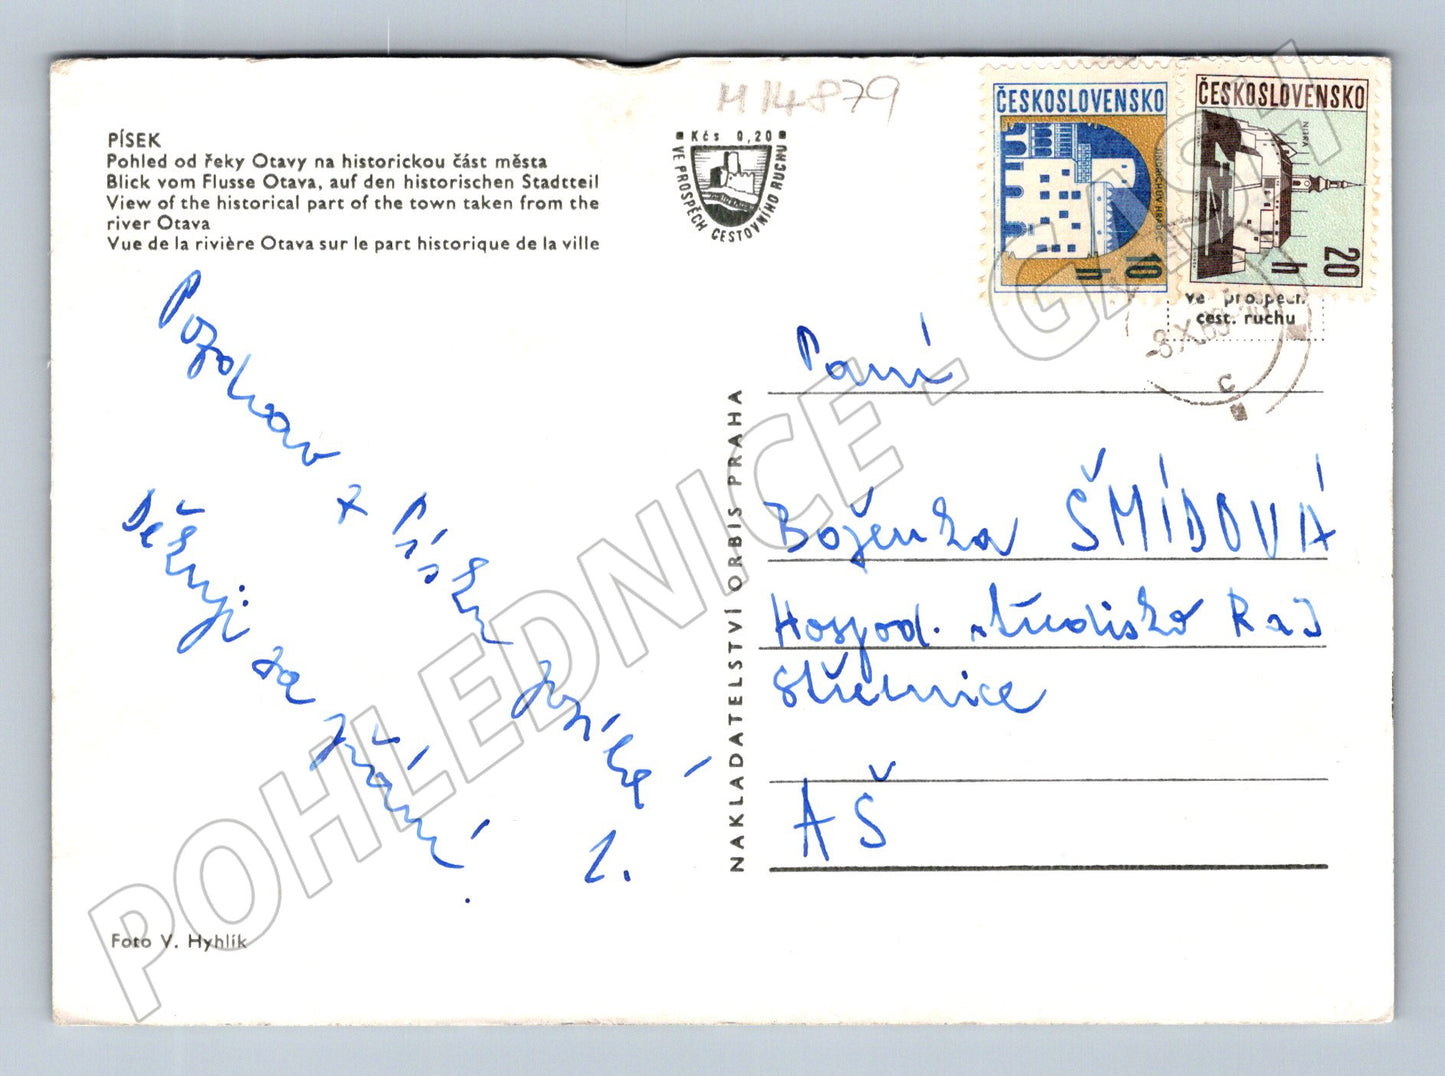 M 14879
PÍSEK
Pohled od řeky Otavy na historickou část města
Blick vom Flusse Otava, auf den historischen Stadtteil
View of the historical part of the town taken from the
river Otava
Vue de la rivière Otava sur le part historique de la ville
Kčs 0,20
VE PROSPĚCH CESTOVNÍHO RUCHU
ČESKOSLOVENSKO
JINDŘICHŮV HRADEC
10 h
ČESKOSLOVENSKO
NITRA
20 h
ve prospěch
cest. ruchu
-8.X.
c
Pozdrav z Písku
Děkuji za přání.
Foto V. Hyhlík
NAKLADATELSTVÍ ORBIS PRAHA
Paní
Boženka ŠMÍDOVÁ
Hospod. středisko RaJ
Střelnice
AŠ
POHLEDNICE - GASH